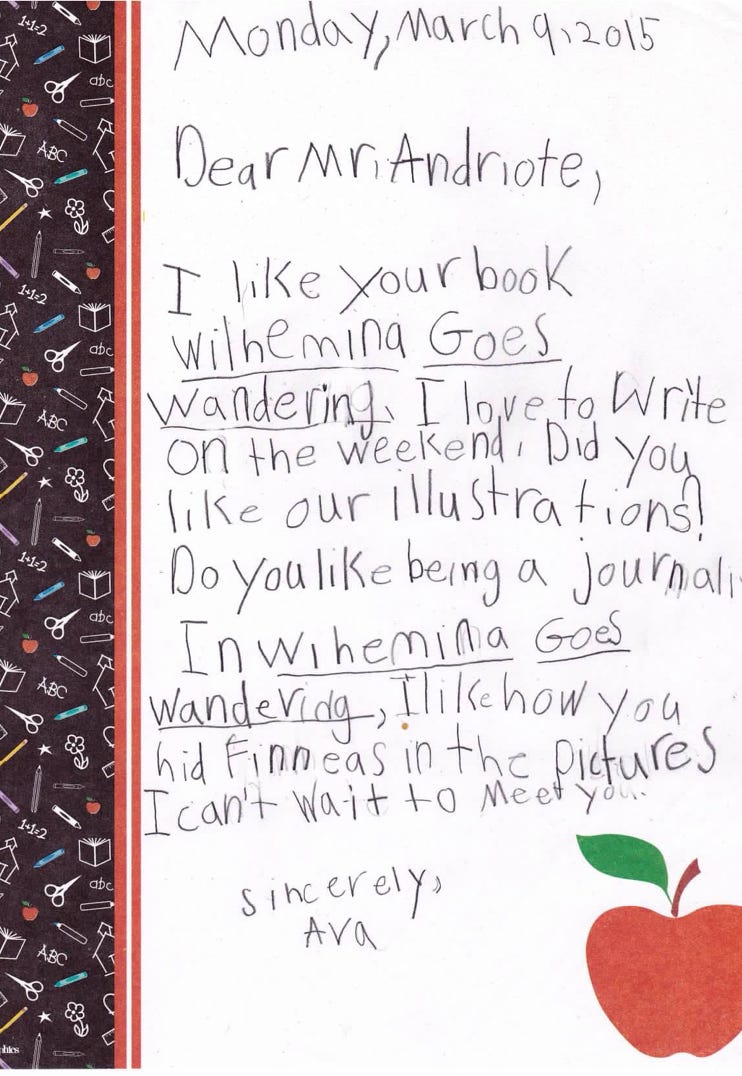 Monday, March 9, 2015
Dear Mr. Andriote,
I like your book
wilhemina Goes
wandering. I love to Write
on the weekend. Did you
like our illustrations?
Do you like being a journali
In wihemina Goes
wandering, I like how you
hid Finneas in the pictures
I can't wait to Meet you.
sincerely,
Ava